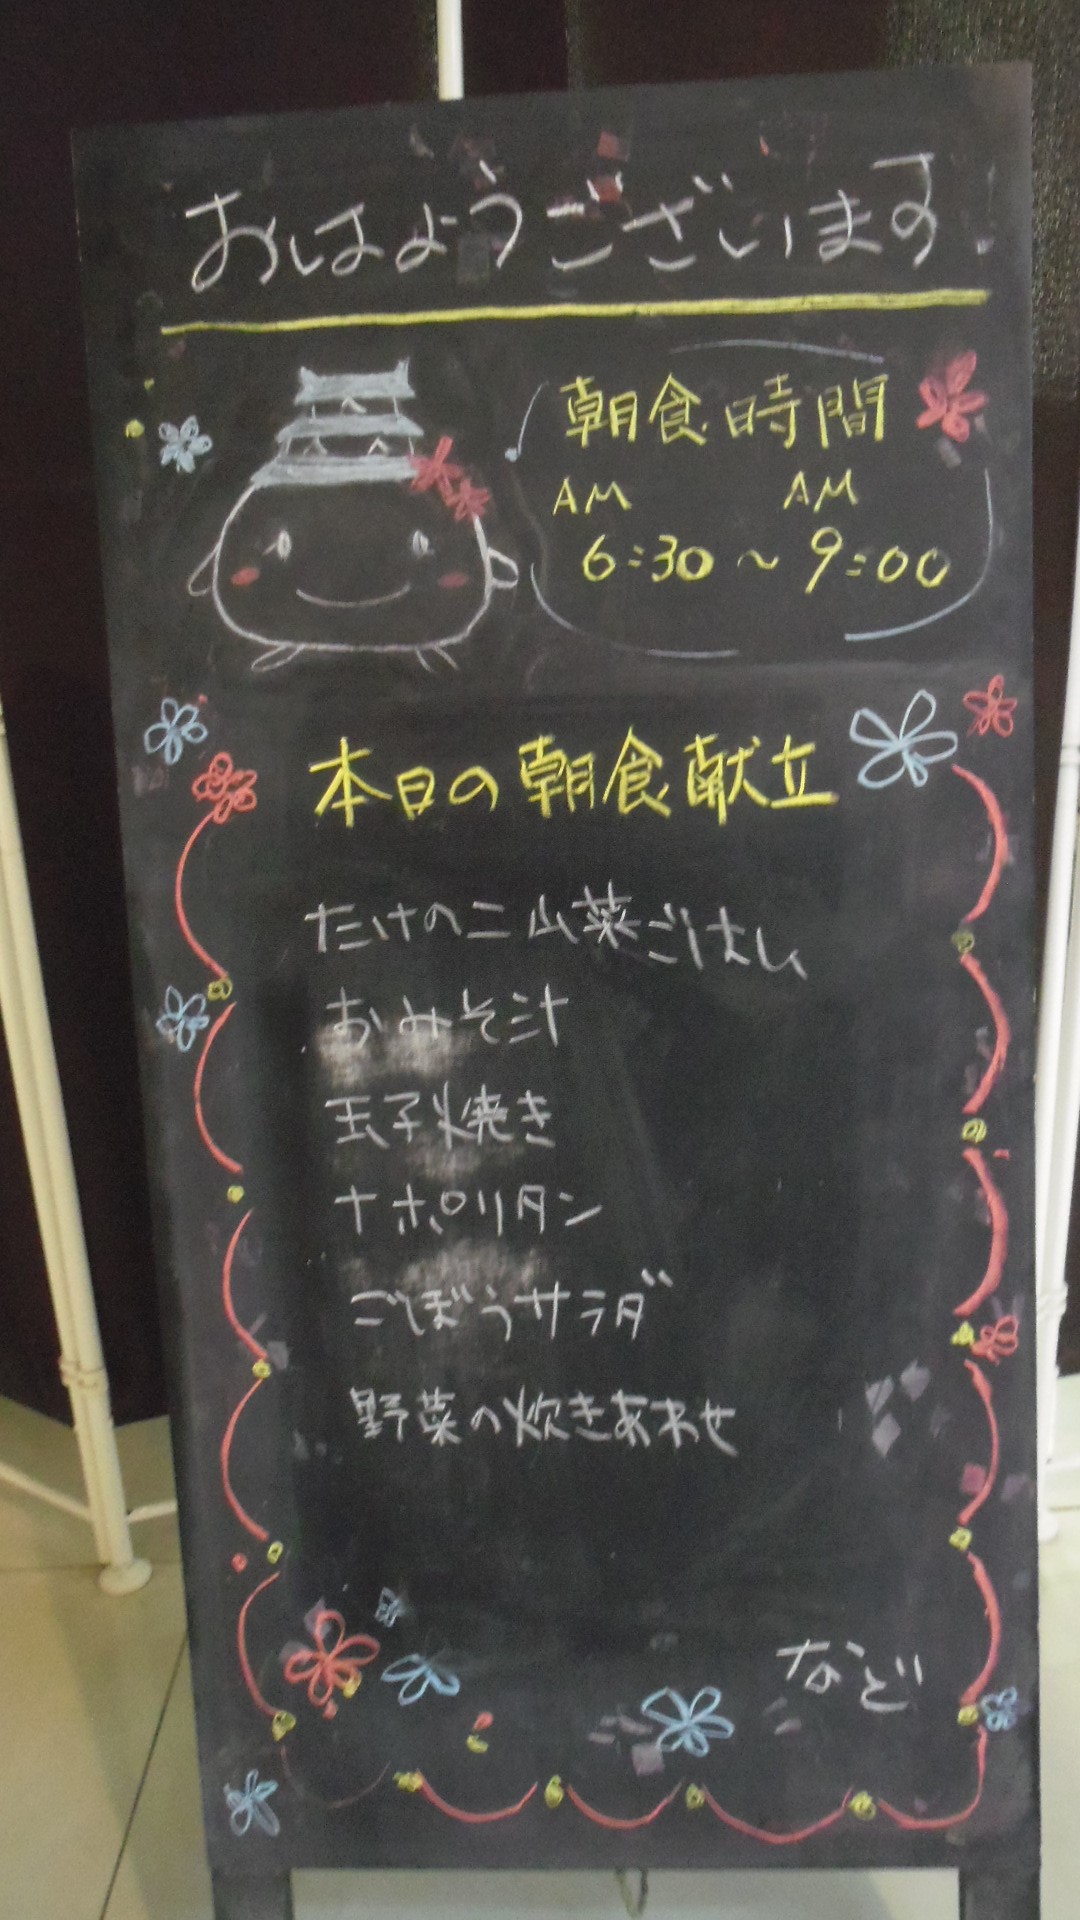 おはようございます
朝食時間
AM AM
6:30～9:00
本日の朝食献立
たけのこ山菜ごはん
おみそ汁
玉子焼き
ナポリタン
ごぼうサラダ
野菜の炊きあわせ
など